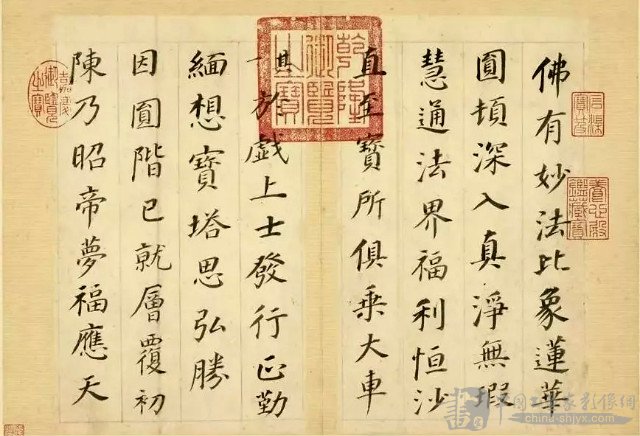 佛有妙法比象蓮華
圓頓深入真淨無瑕
慧通法界福利恒沙
直至寶所俱乘大車
其一於戲上士發行正勤
緬想寶塔思弘勝
因圓階已就層覆初
陳乃昭帝夢福應天
乾隆御覽之寶
嘉慶御覽之寶
石渠寶笈
養心殿鑑藏寶
china-shjyx.com